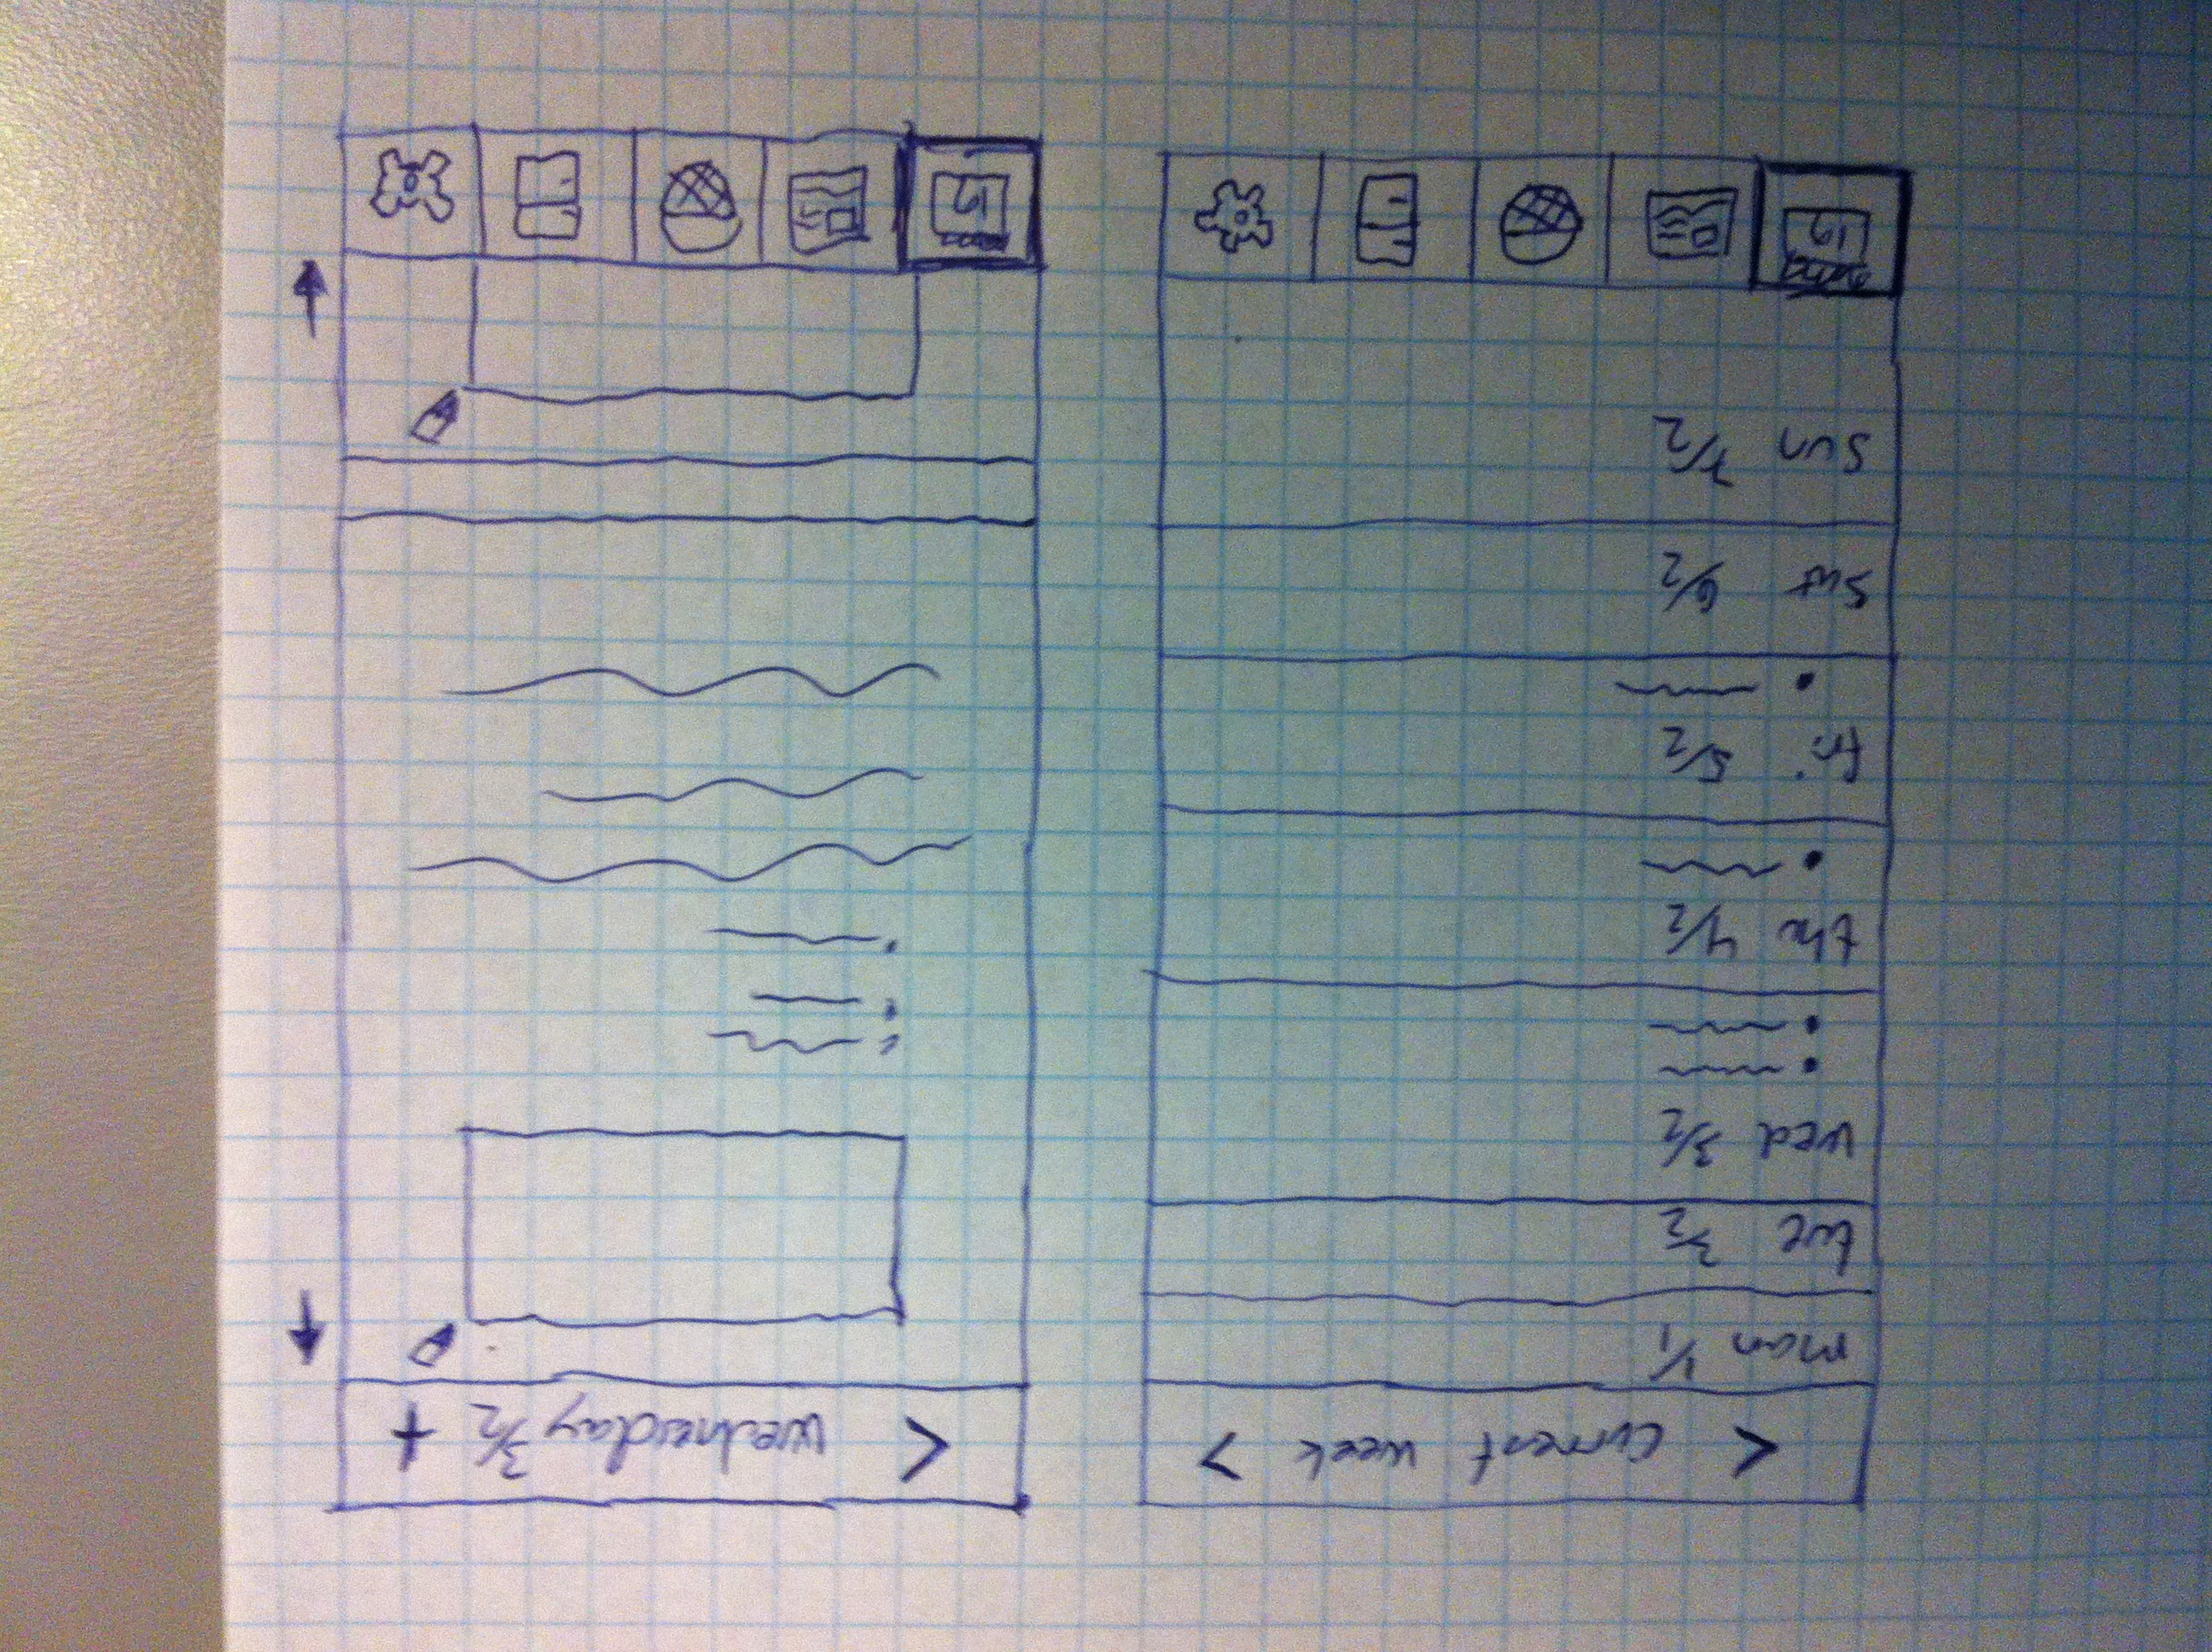 < Current week >
man 1/1
tue 2/2
wed 3/2
thu 4/2
fri 5/2
sat 6/2
sun 7/2
< wednesday 3/2 +